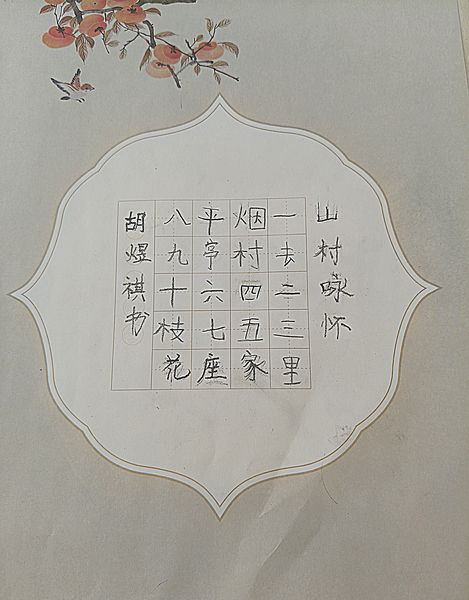 山村咏怀
一去二三里
烟村四五家
平亭六七座
八九十枝花
胡煜祺书